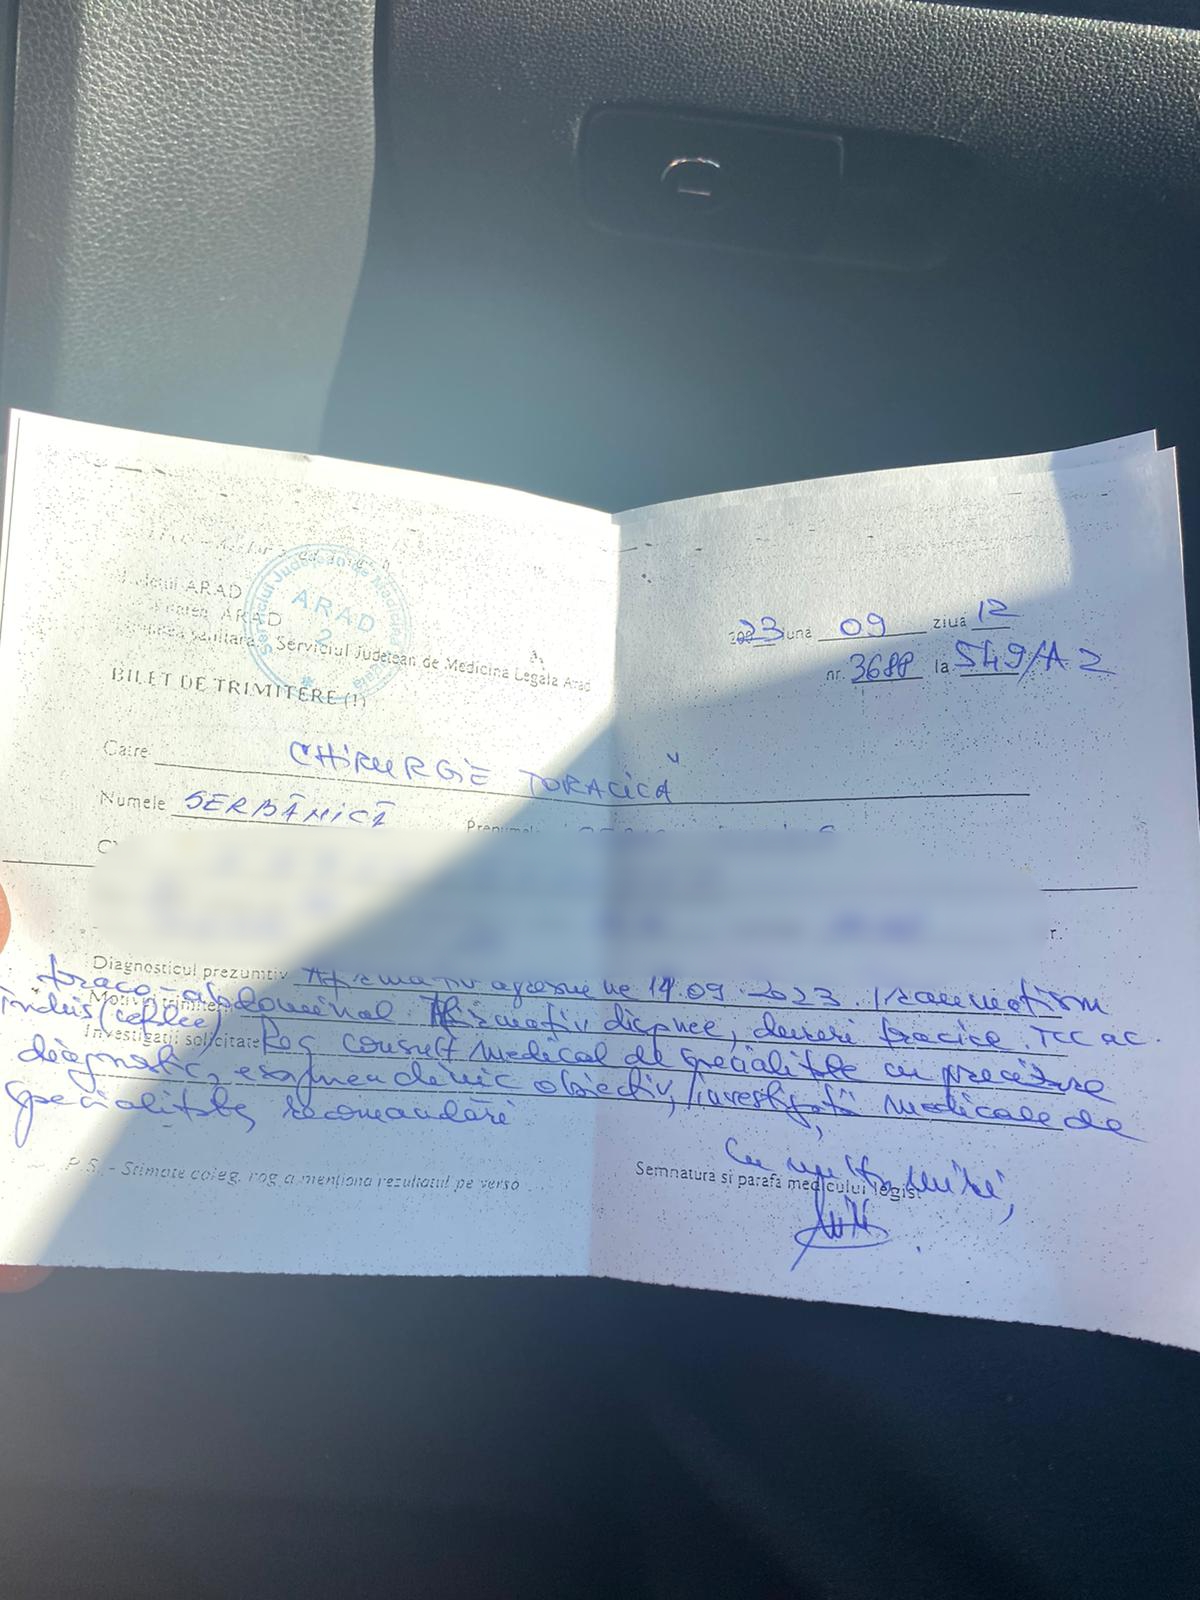 Serviciul Județean de Medicină Legală
ARAD
2
ARAD
ARAD
sanitara Serviciul Judetean de Medicina Legala Arad
BILET DE TRIMITERE (!)
2023 luna 09 ziua 12
nr. 3688 la 549/A2
Catre CHIRURGIE TORACICĂ
Numele SERBĂNICĂ Prenumele
r.
Diagnosticul prezumtiv Afirmativ agresiune 14.09.2023. Traumatism
traco-abdominal. Afirmativ dispnee, dureri tracice. TCC ac.
Motivul trimiterii
închis (cefalee)
Investigații solicitate Rog consult medical de specialitate cu precizare
diagnostic, examen clinic obiectiv, investigații medicale de
specialitate, recomandări
P.S. - Stimate coleg, rog a menționa rezultatul pe verso
Cu mulțumiri,
Semnatura si parafa medicului legist